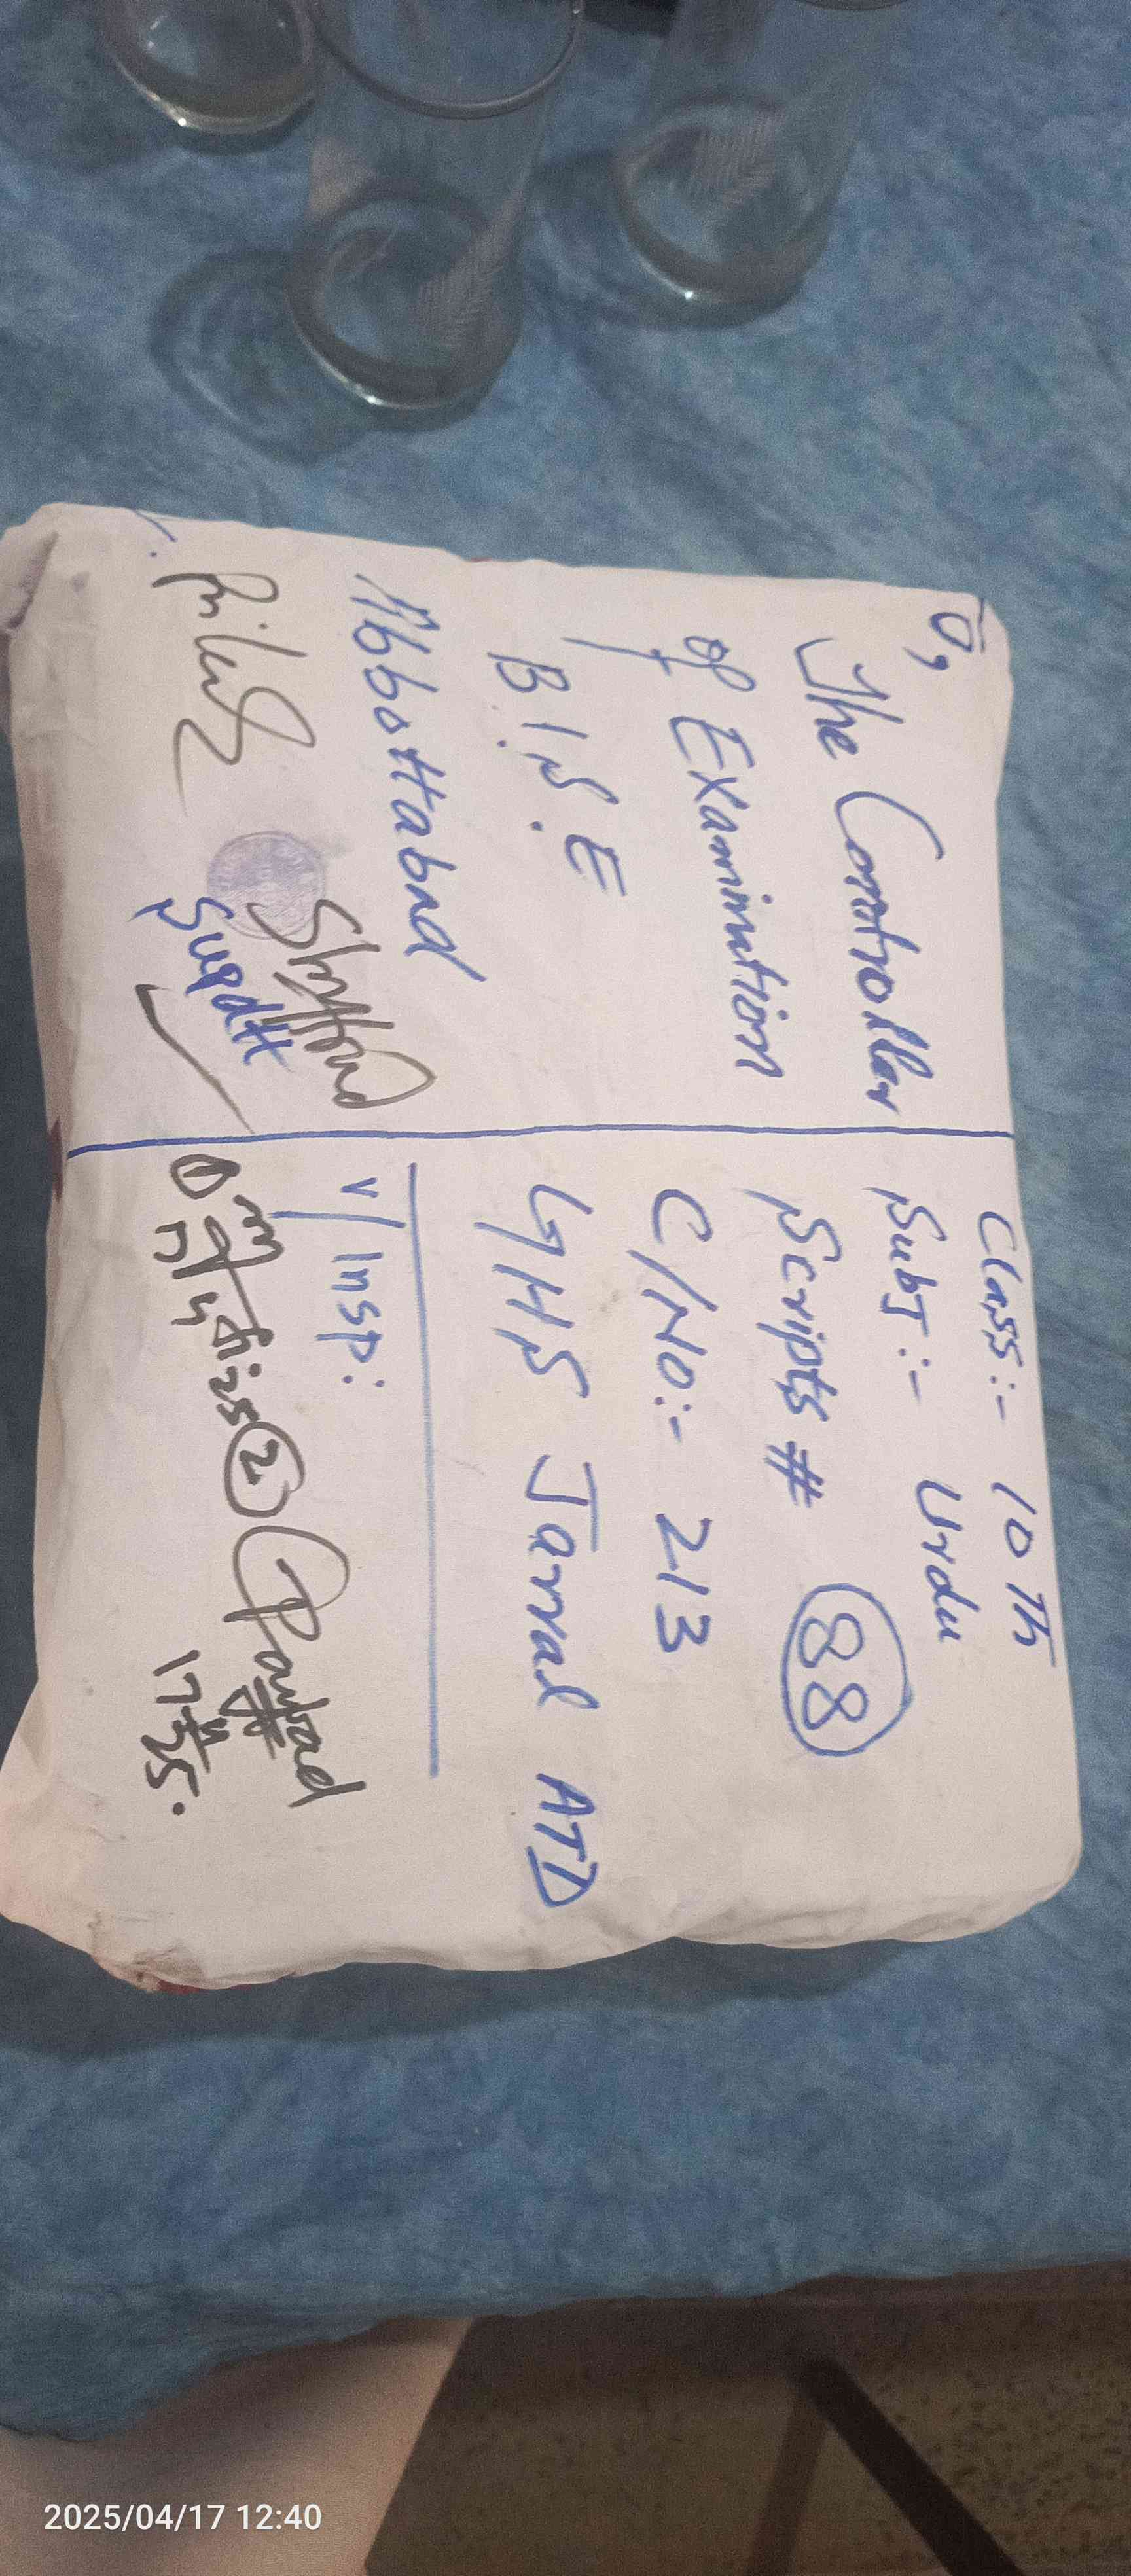 To,
The Controller
of Examination
B.I.S.E
Abbottabad
Supdtt
Class:- 10Th
Subj:- Urdu
Scripts # 88
C/No:- 213
GHS Jarral ATD
V/Insp:
②
17-4-25.
2025/04/17 12:40